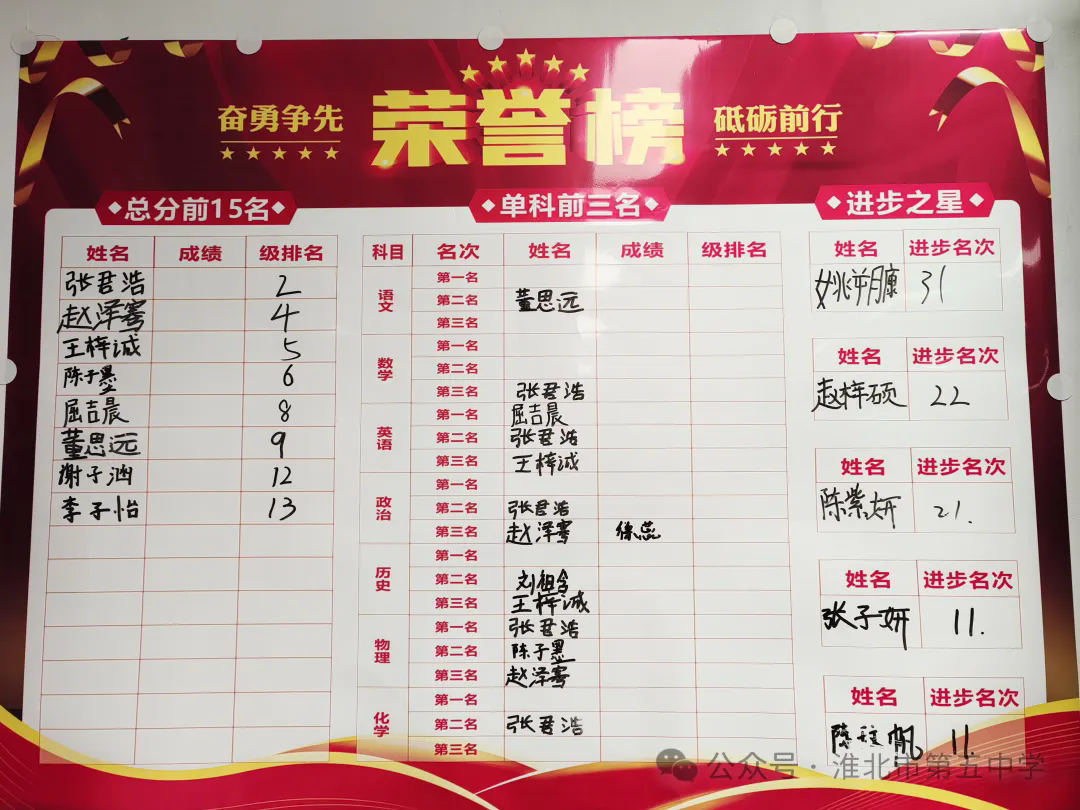 奋勇争先 荣誉榜 砥砺前行
总分前15名
姓名 成绩 级排名
张君浩 2
赵泽骞 4
王梓诚 5
陈子墨 6
屈吉晨 8
董思远 9
谢子涵 12
李子怡 13
单科前三名
科目 名次 姓名 成绩 级排名
语文
第一名
第二名 董思远
第三名
数学
第一名
第二名
第三名 张君浩
英语
第一名 屈吉晨
第二名 张君浩
第三名 王梓诚
政治
第一名
第二名 张君浩
第三名 赵泽骞 徐蕊
历史
第一名
第二名
第三名 王梓诚
物理
第一名 张君浩
第二名 陈子墨
第三名 赵泽骞
化学
第一名
第二名 张君浩
第三名
进步之星
姓名 进步名次
31
姓名 进步名次
赵梓硕 22
姓名 进步名次
陈紫妍 21.
姓名 进步名次
张子妍 11.
姓名 进步名次
11.
公众号 · 淮北市第五中学